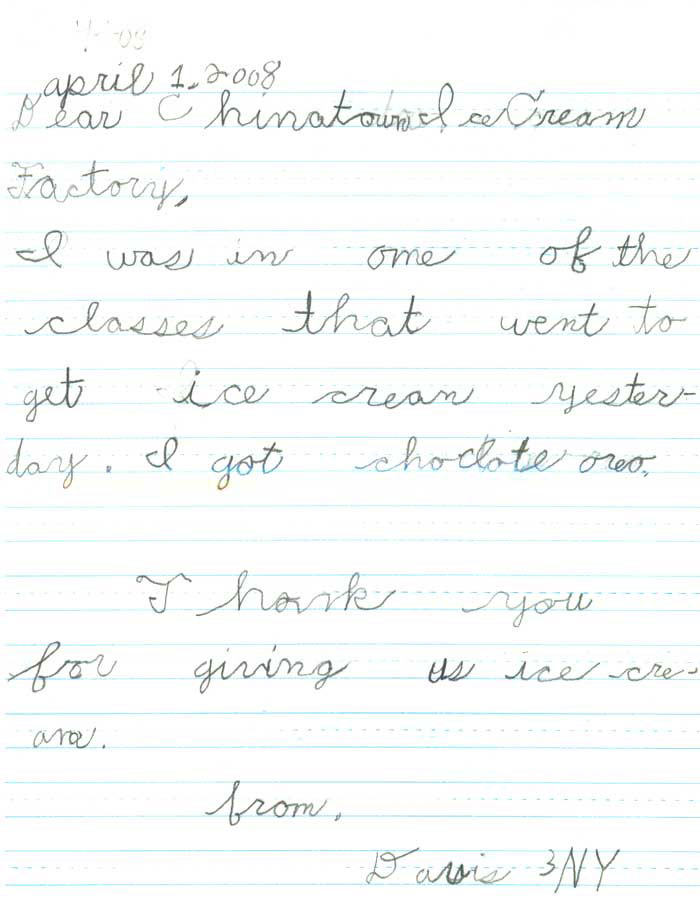 april 1, 2008
Dear Chinatown Ice Cream
Factory,
I was in one of the
classes that went to
get ice crean yester-
day. I got choclate oreo.
Thank you
for giving us ice cre-
am.
from,
Davis 3NY